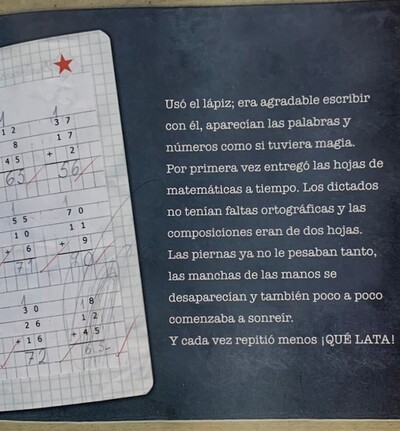 1 1
12 37
8 17
45 + 2
65 56
1 1
55 70
10 11
+ 6 + 9
71
1 1
30 18
26 12
+ 16 + 45
72
Usó el lápiz; era agradable escribir
con él, aparecían las palabras y
números como si tuviera magia.
Por primera vez entregó las hojas de
matemáticas a tiempo. Los dictados
no tenían faltas ortográficas y las
composiciones eran de dos hojas.
Las piernas ya no le pesaban tanto,
las manchas de las manos se
desaparecían y también poco a poco
comenzaba a sonreír.
Y cada vez repitió menos ¡QUÉ LATA!